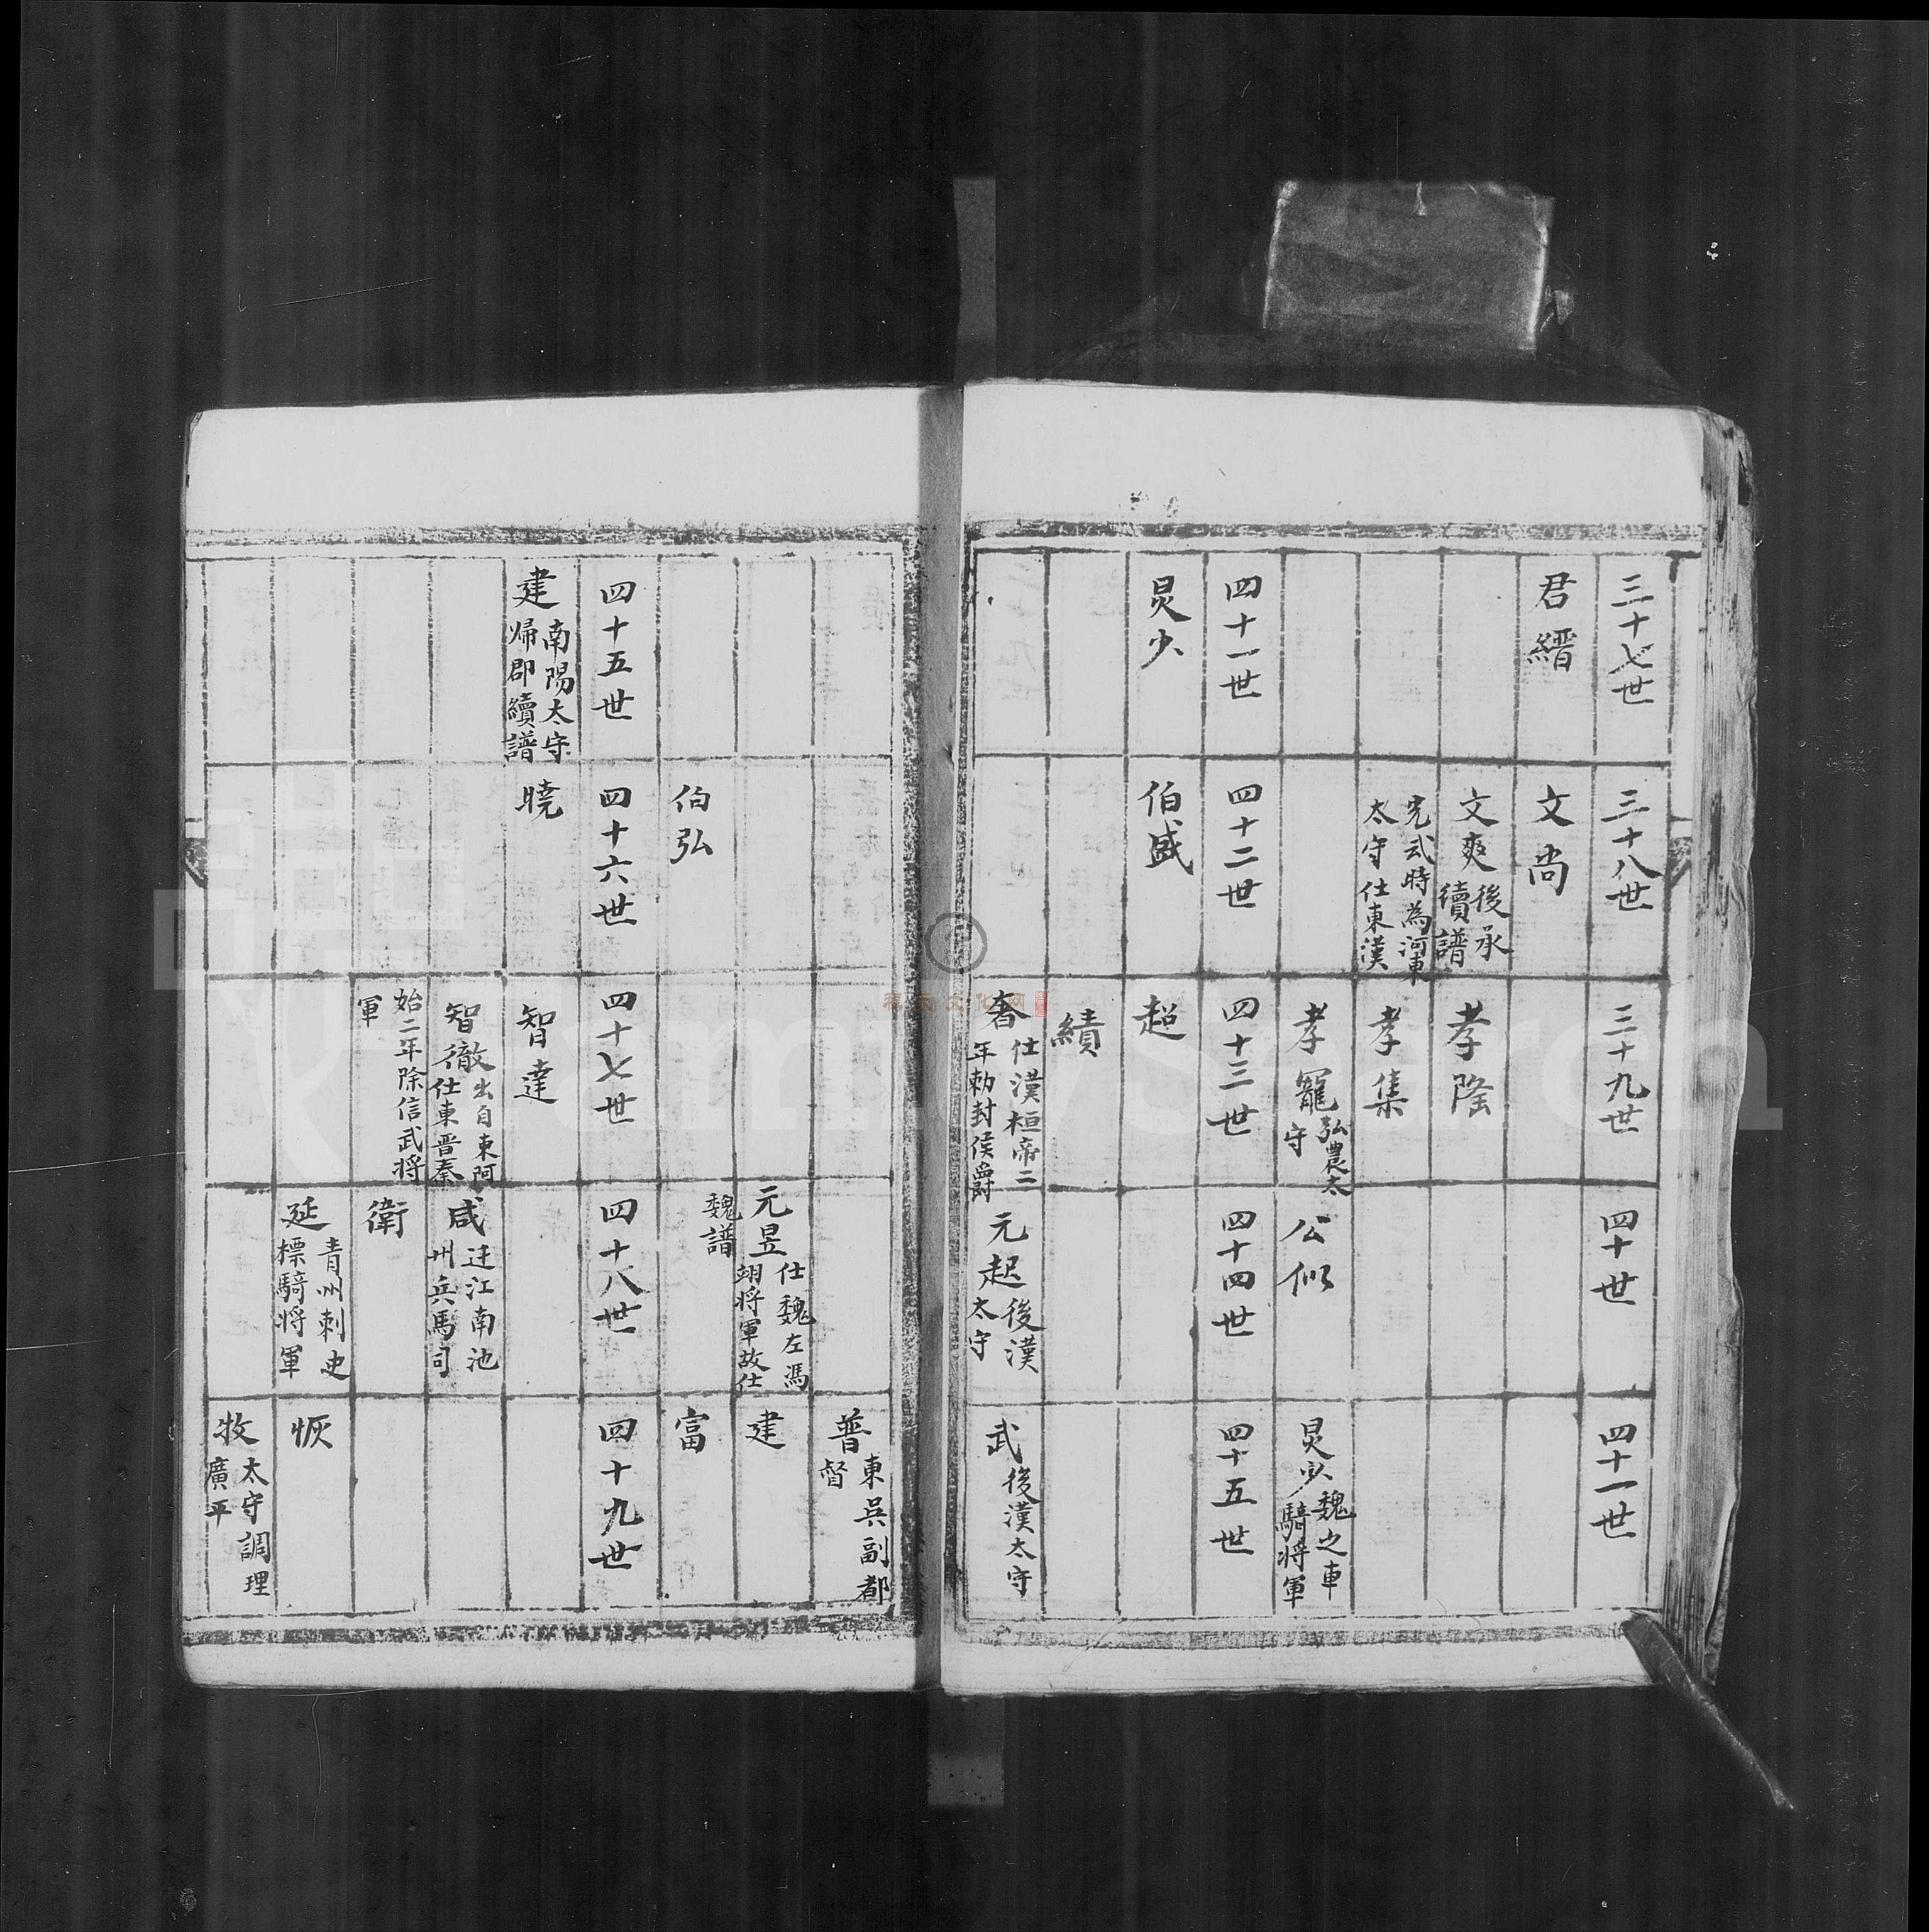 三十七世
三十八世
三十九世
四十世
四十一世
君縉
文尚
文爽
後承
續譜
孝隆
光武時為河東
太守仕東漢
孝集
孝寵
弘農太
守
公似
炅少
魏之車
騎將軍
四十一世
四十二世
四十三世
四十四世
四十五世
炅少
伯盛
超
績
奢
仕漢桓帝二
年勅封侯爵
元起
後漢
太守
武
後漢太守
普
東吳副都
督
元昱
仕魏左馮
翊將軍故仕
魏譜
建
伯弘
富
四十五世
四十六世
四十七世
四十八世
四十九世
建
南陽太守
歸郡續譜
曉
智達
智徹
出自東阿
仕東晋秦
始二年除信武將
軍
咸
迁江南池
州兵馬司
衛
延
青州刺史
標騎將軍
恢
牧
太守調理
廣平